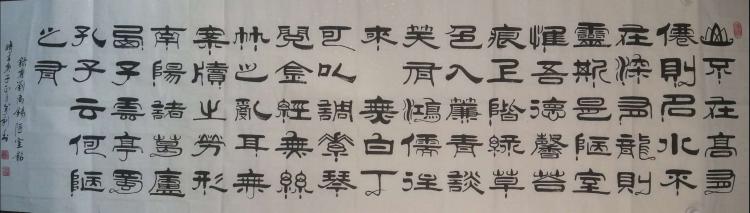 山不在高有
僊則名水不
在深有龍則
靈斯是陋室
惟吾德馨苔
痕上階綠草
色入簾青談
笑有鴻儒往
來無白丁
可以調素琴
閱金經無絲
竹之亂耳無
案牘之勞形
南陽諸葛廬
子雲亭蜀
孔子云何陋
之有
錄唐劉禹錫陋室銘
時在庚子